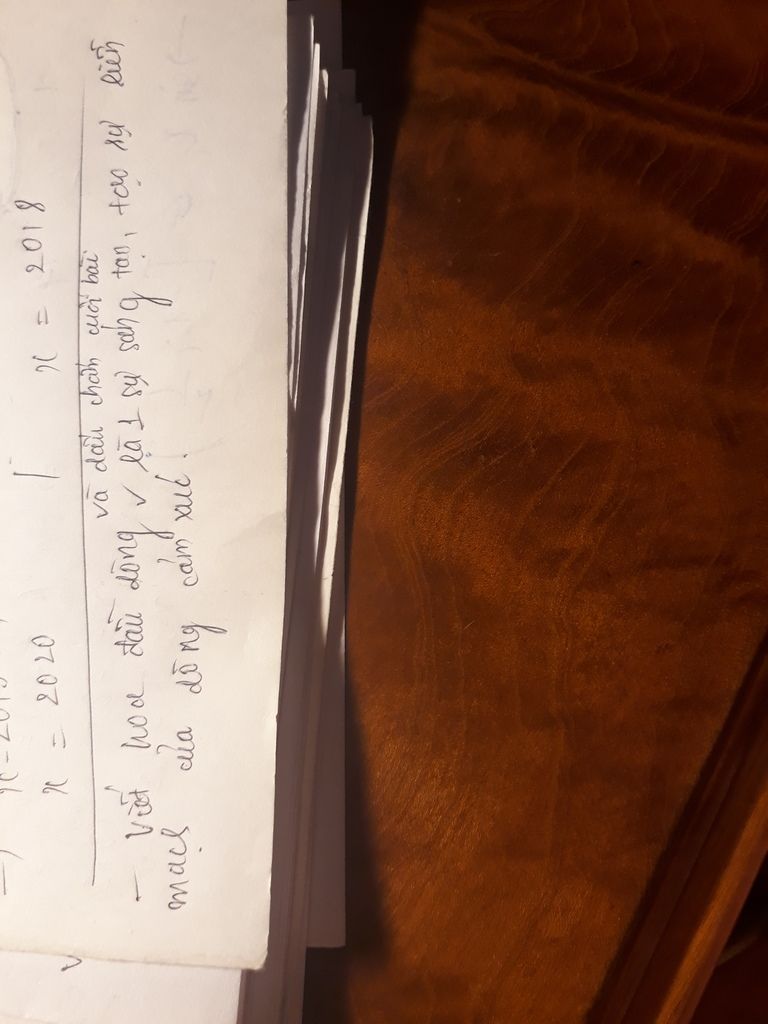 x = 2020
x = 2018
và dấu chấm cuối bài
- Viết hoa đầu dòng ✓ là 1 sự sáng tạo, tạo sự liền
mạch của dòng cảm xúc.